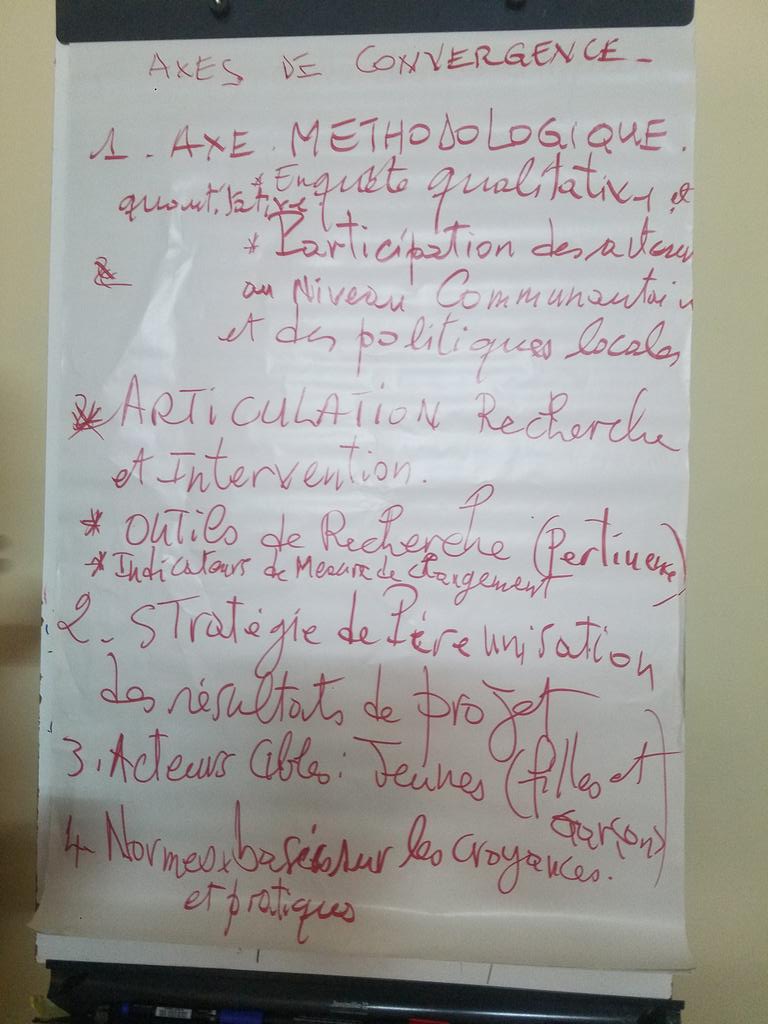 AXES DE CONVERGENCE -
1 - AXE METHODOLOGIQUE.
* Enquête qualitative et
quantitative
* Participation des acteurs
au Niveau Communautair
et des politiques locales
* ARTICULATION Recherche
et Intervention.
* Outils de Recherche (Pertinence)
* Indicateurs de Mesure de changement
2 - STratégie de Pérennisation
des résultats de projet
3. Acteurs Cibles : Jeunes (filles et
Garçons)
4 - Normes basées sur les croyances.
et pratiques